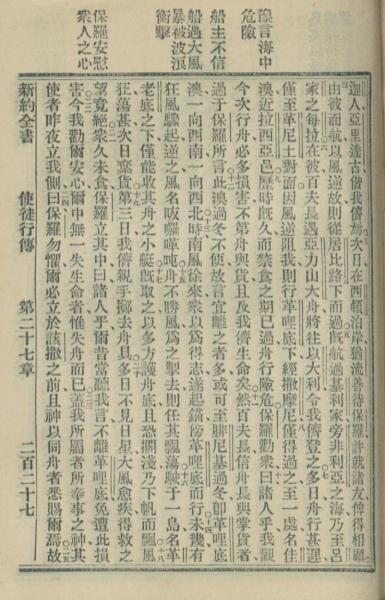 豫言海中
危險
船主不信
船遇大風
暴被波浪
衝擊
保羅安慰
衆人之心
迦人亞里達古偕我儕焉次日在西頓泊岸猶流善待保羅許就諸友俾得相顧
由彼而航以風逆故則從居比路下而過旣航過基利家旁非利亞之海乃至呂
家之每拉在彼百夫長遇亞力山大舟將往以大利令我儕登之多日舟行甚遲
僅至革尼土對面因風逆阻我則行革哩底下經撒摩尼僅得過之至一處名佳
澳近拉西亞邑歷時旣久而禁食之期已過舟行險危保羅勸衆曰諸人乎我觀
今次行舟必多損害不第舟與貨且及我儕生命矣然百夫長信舟長與掌貨者
過于保羅所言此澳過冬不便故言宜離之者多或可至腓尼基過冬卽革哩底
澳一向西南一向西北時南風徐來衆以爲得志遂起錨傍革哩底而行未幾有
狂風驟起逆之風名㕹囉嗶吨舟不勝風爲之掣去則任其飄蕩駛于一島名革
老底之下僅能收其舟之小艇旣取之以多方護舟底且恐擱淺乃下帆而飄風
狂蕩甚次日棄貨第三日我儕親手擲去舟具多日不見日星大風愈疾得救之
望竟絕衆久未食保羅立其中曰諸人乎爾昔當聽我言不離革哩底免遭此損
害今我勸爾安心爾中無一失生命者惟失舟而已蓋我所屬者所奉事之神其
使者昨夜立我側曰保羅勿懼爾必立於該撒之前且神以同舟者悉賜爾焉故
新約全書 使徒行傳 第二十七章 二百二十七